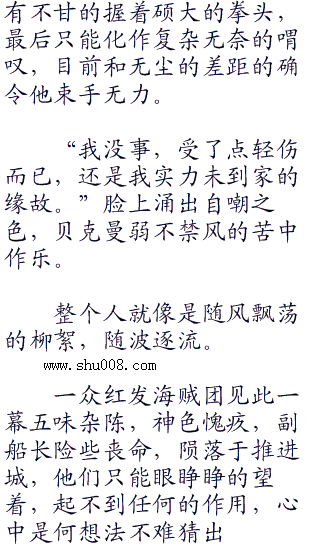 有不甘的握着硕大的拳头，
最后只能化作复杂无奈的喟
叹，目前和无尘的差距的确
令他束手无力。
“我没事，受了点轻伤
而已，还是我实力未到家的
缘故。”脸上涌出自嘲之
色，贝克曼弱不禁风的苦中
作乐。
整个人就像是随风飘荡
的柳絮，随波逐流。
www.shu008.com
一众红发海贼团见此一
幕五味杂陈，神色愧疚，副
船长险些丧命，陨落于推进
城，他们只能眼睁睁的望
着，起不到任何的作用，心
中是何想法不难猜出